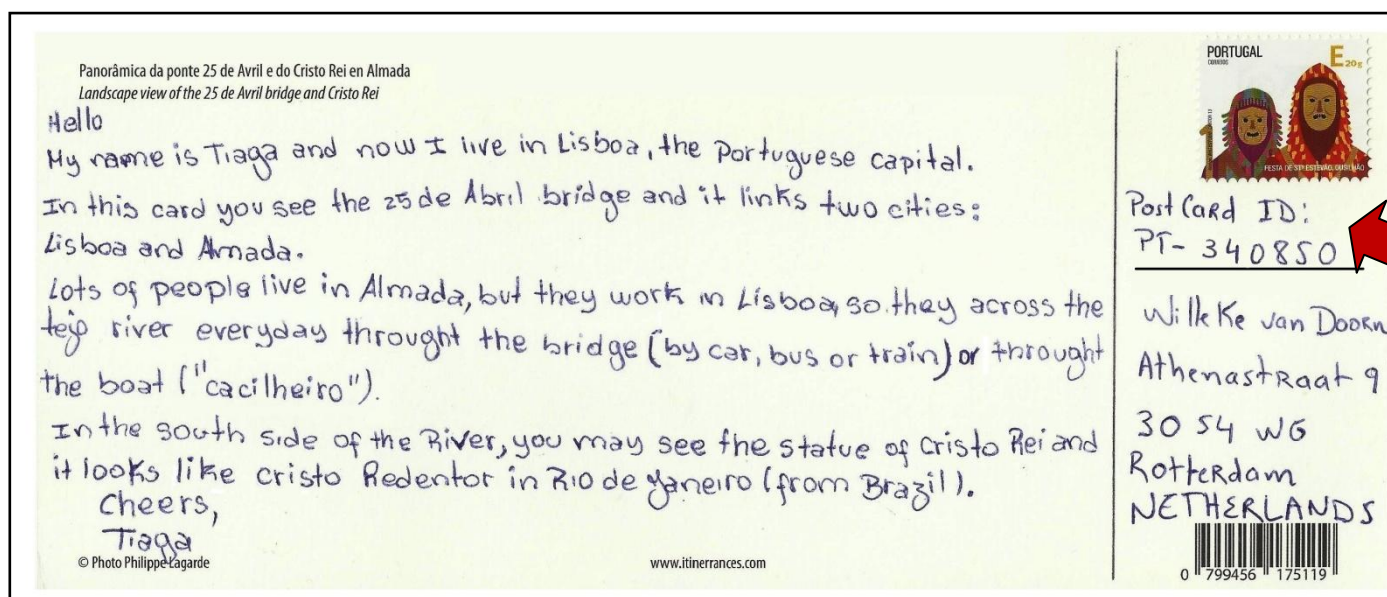 Panorâmica da ponte 25 de Avril e do Cristo Rei en Almada
Landscape view of the 25 de Avril bridge and Cristo Rei
Hello
My name is Tiaga and now I live in Lisboa, the Portuguese capital.
In this card you see the 25 de Abril bridge and it links two cities:
Lisboa and Almada.
Lots of people live in Almada, but they work in Lisboa, so they across the
tejo river everyday throught the bridge (by car, bus or train) or throught
the boat ("cacilheiro").
In the south side of the River, you may see the statue of Cristo Rei and
it looks like cristo Redentor in Rio de Janeiro (from Brazil).
Cheers,
Tiaga
© Photo Philippe Lagarde
www.itinerrances.com
PORTUGAL
CORREIOS
E 20g
FESTA DE STº ESTEVÃO, OUSILHÃO
PostCard ID:
PT-340850
Willeke van Doorn
Athenastraat 9
3054 WG
Rotterdam
NETHERLANDS
0 799456 175119